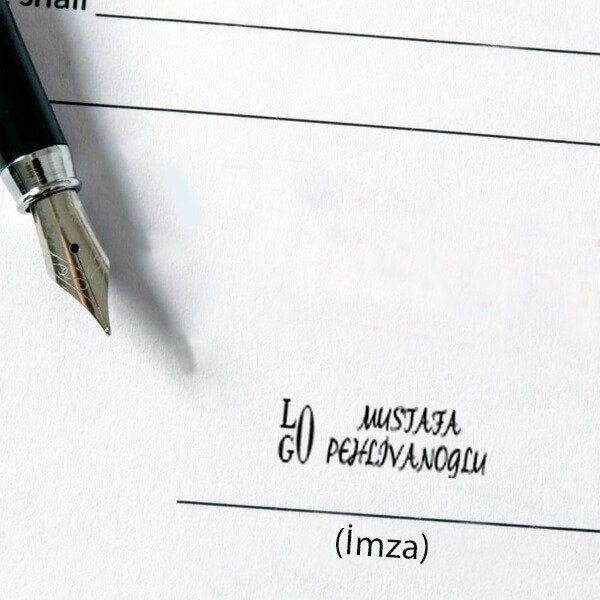 shall
LOGO MUSTAFA
PEHLİVANOGLU
(İmza)